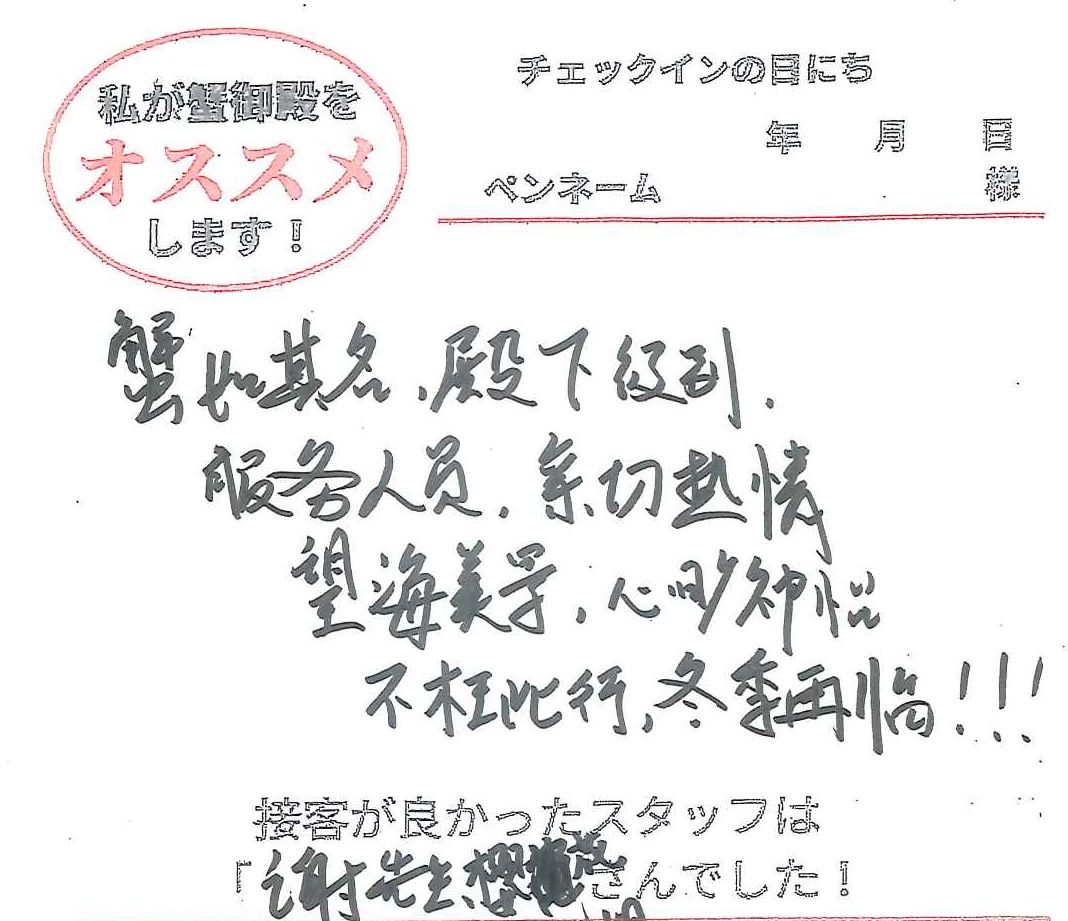 私が蟹御殿を
オススメ
します！
チェックインの日にち
年 月 日
ペンネーム 様
蟹如其名，殿下役到．
服务人员，亲切热情
望海美学，心旷神怡
不枉此行，冬季再临！！！
接客が良かったスタッフは
「谢先生，櫻 さんでした！